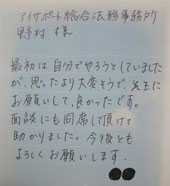 アイサポート総合法務事務所
野村 様
最初は自分でやろうとしていました
が、思ったより大変そうで、先生に
お願いして、良かったです。
面談にも同席して頂けて
助かりました。今後とも
よろしくお願いします。